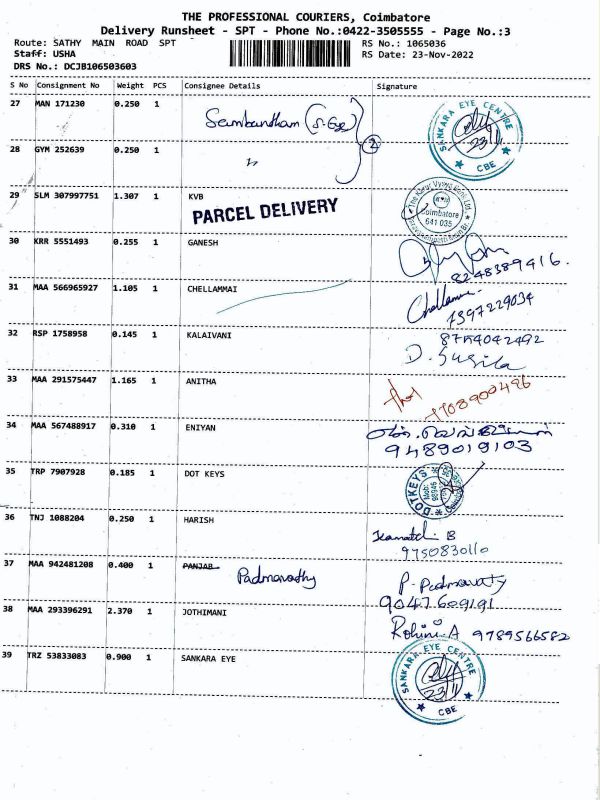 THE PROFESSIONAL COURIERS, Coimbatore
Delivery Runsheet - SPT - Phone No.:0422-3505555 - Page No.:3
Route: SATHY MAIN ROAD SPT
RS No.: 1065036
Staff: USHA
RS Date: 23-Nov-2022
DRS No.: DCJB106503603
S No Consignment No Weight PCS Consignee Details Signature
27 MAN 171230 0.250 1 Sambantham (S-Eye) SANKARA EYE CENTRE 23/11 CBE
28 GYM 252639 0.250 1 2
29 SLM 307997751 1.307 1 KVB
PARCEL DELIVERY
The Karur Vysya Bank Ltd. Coimbatore 641 035
30 KRR 5551493 0.255 1 GANESH
8248389416.
31 MAA 566965927 1.105 1 CHELLAMMAI Chellammai
7397229034
32 RSP 1758958 0.145 1 KALAIVANI 8754042492
D. Sugila
33 MAA 291575447 1.165 1 ANITHA
7708900496
34 MAA 567488917 0.310 1 ENIYAN
9489019103
35 TRP 7907928 0.185 1 DOT KEYS DOTKEYS
36 TNJ 1088204 0.250 1 HARISH
B
9750830110
37 MAA 942481208 0.400 1 PANJAB Padmavathy P. Padmavaty
9047609191
38 MAA 293396291 2.370 1 JOTHIMANI Rohini.A 9789566582
39 TRZ 53833083 0.900 1 SANKARA EYE SANKARA EYE CENTRE 23/11 CBE